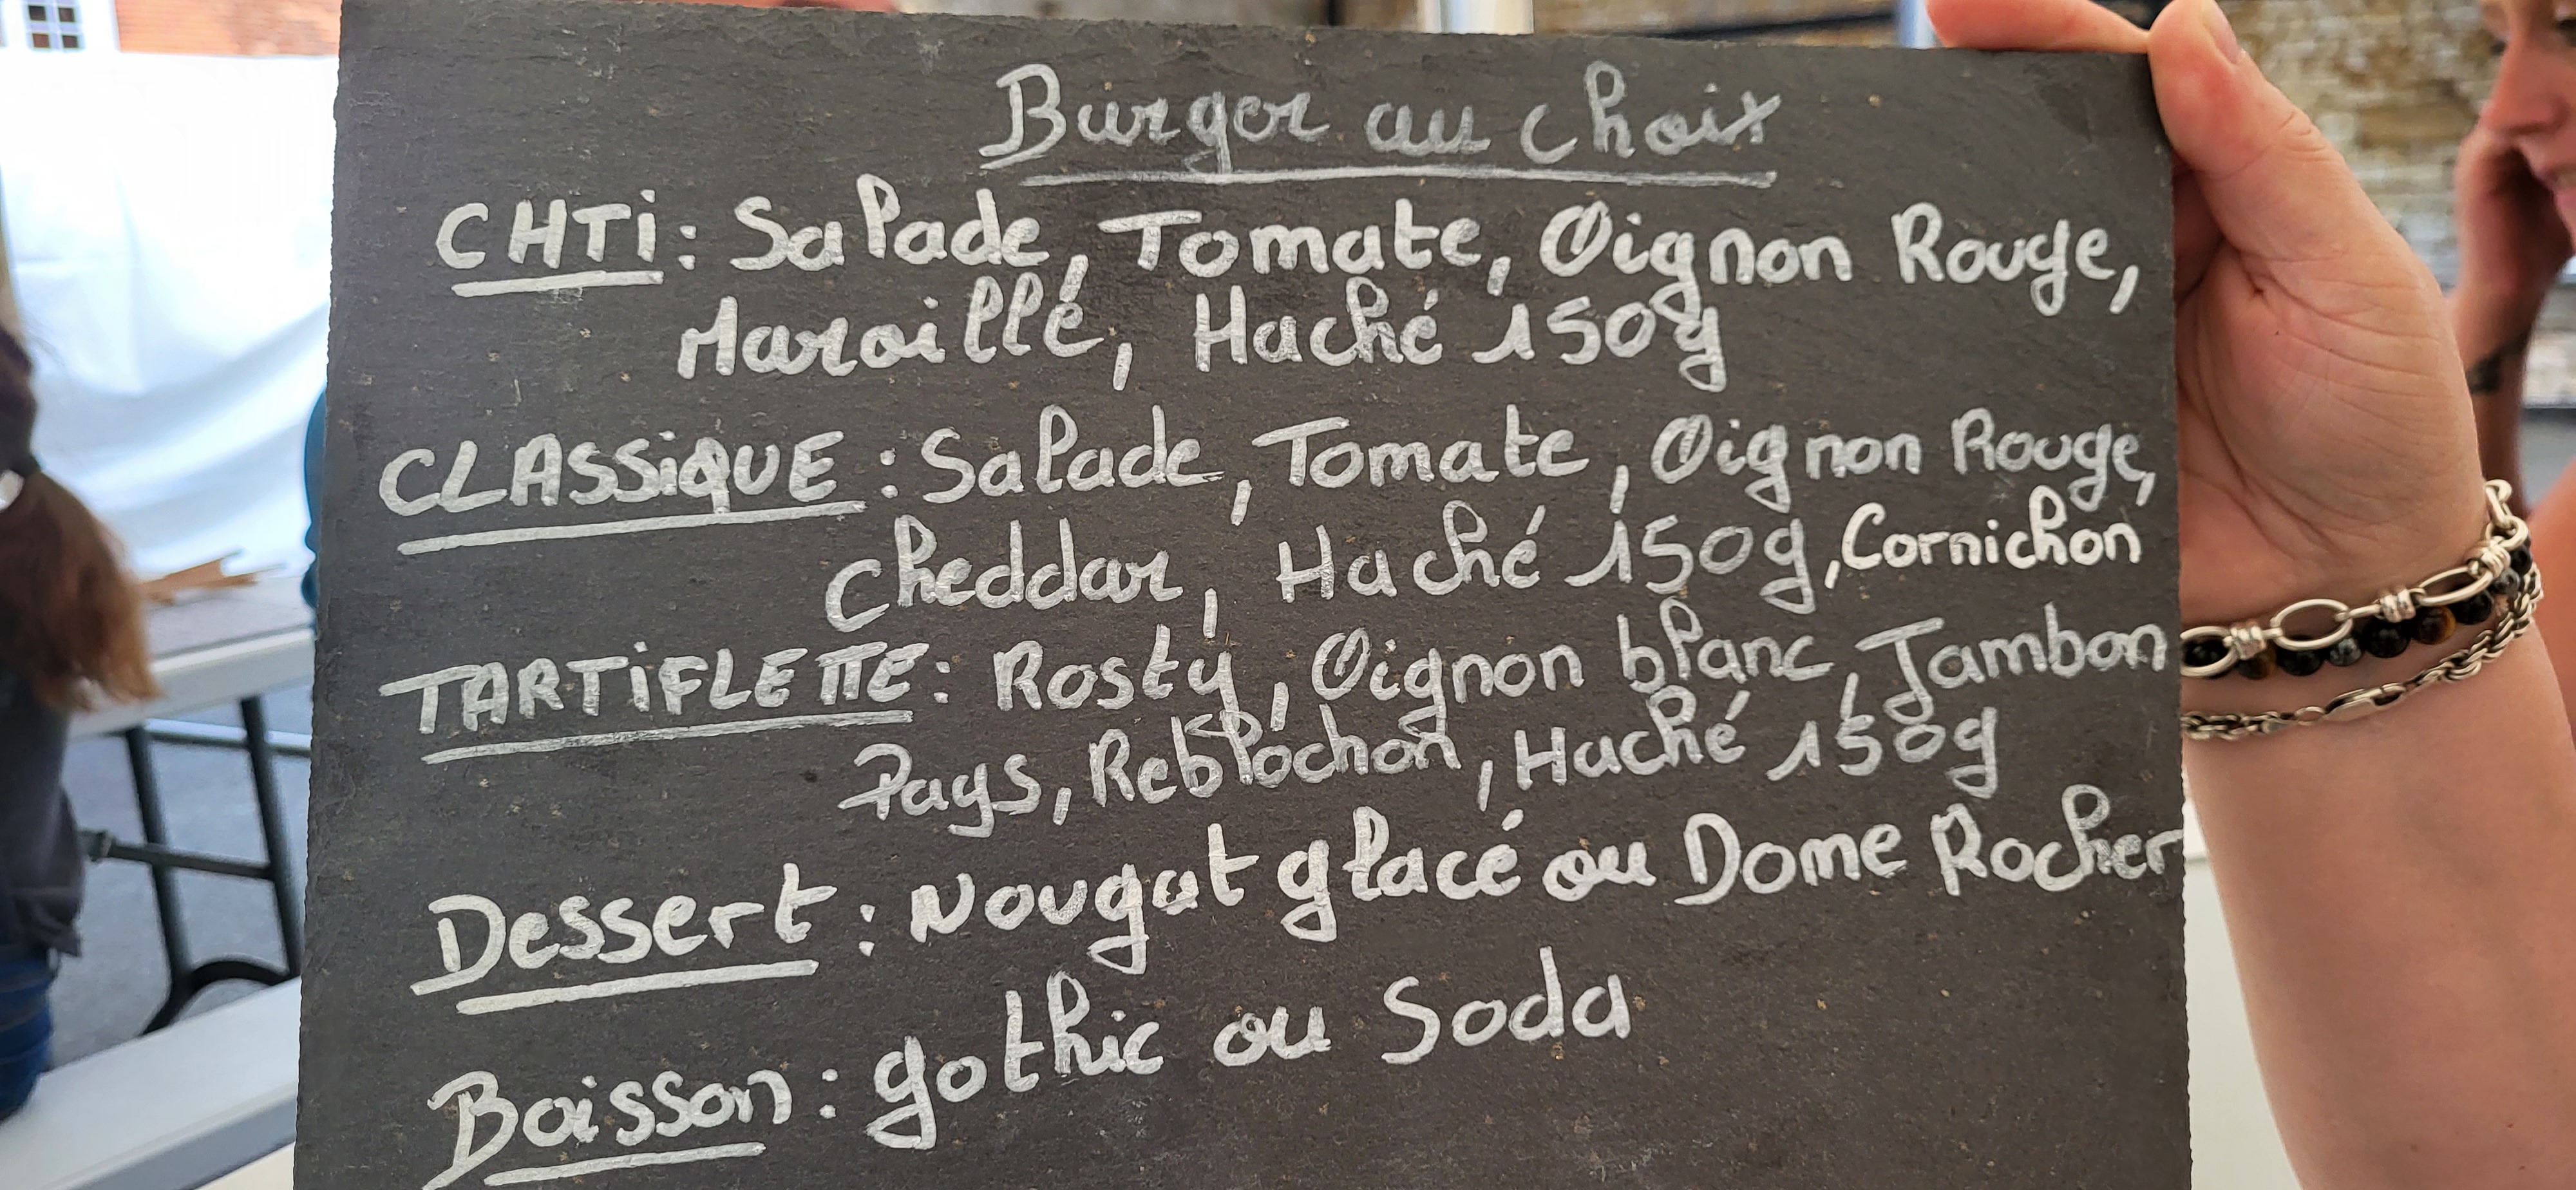 Burger au choix
CHTi : Salade, Tomate, Oignon Rouge,
Maroillé, Haché 150g
CLASSiQUE : Salade, Tomate, Oignon Rouge,
Cheddar, Haché 150g, Cornichon
TARTiFLETTE : Rosty, Oignon blanc, Jambon
Pays, Reblochon, Haché 150g
Dessert : Nougat glacé ou Dome Rocher
Boisson : gothic ou Soda